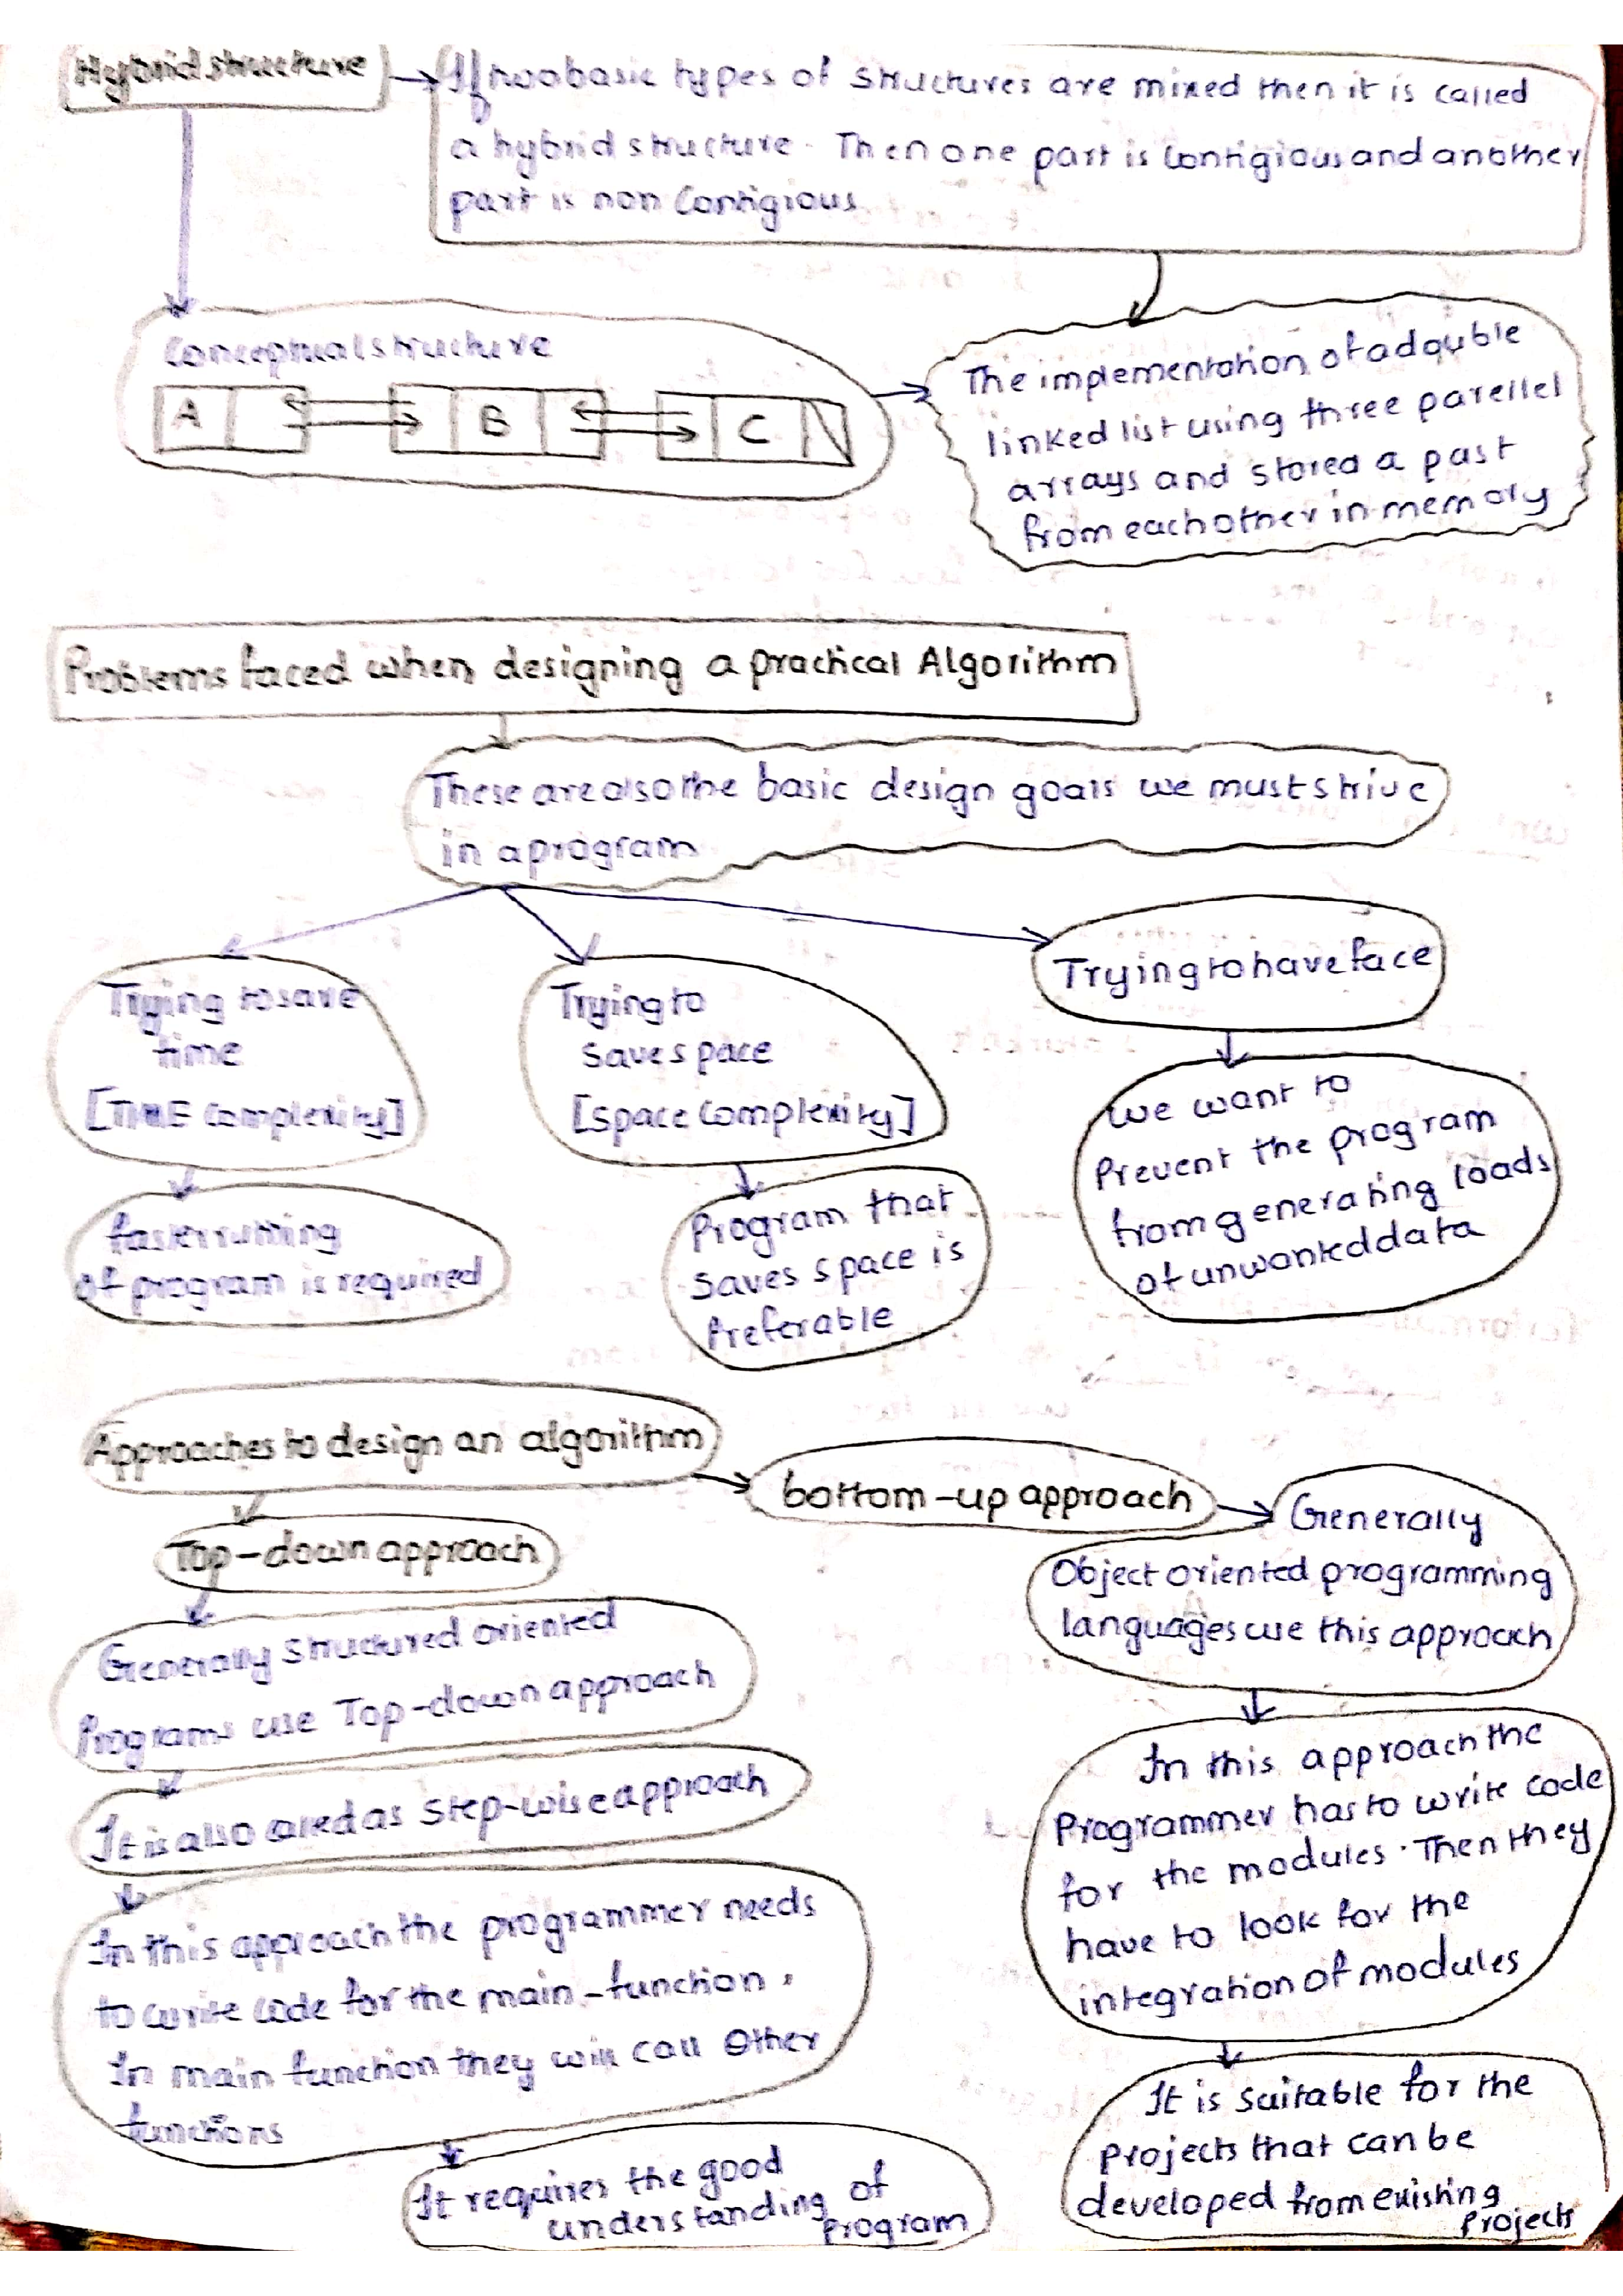 Hybrid structure
If two basic types of structures are mixed then it is called
a hybrid structure. Then one part is contigious and another
part is non contigious
Conceptual structure
A B C
The implementation of a double
linked list using three parellel
arrays and stored a past
from each other in memory
Problems faced when designing a practical Algorithm
These are also the basic design goals we must strive
in a program
Trying to save
time
[TIME complexity]
faster running
of program is required
Trying to
save space
[space complexity]
Program that
saves space is
Preferable
Trying to have face
we want to
Prevent the program
from generating loads
of unwanted data
Approaches to design an algorithm
Top-down approach
Generally structured oriented
Programs use Top-down approach
It is also called as step-wise approach
In this approach the programmer needs
to write code for the main-function.
In main function they will call other
functions
It requires the good
understanding of
program
bottom-up approach
Generally
Object oriented programming
languages use this approach
In this approach the
Programmer has to write code
for the modules. Then they
have to look for the
integration of modules
It is suitable for the
projects that can be
developed from existing
projects